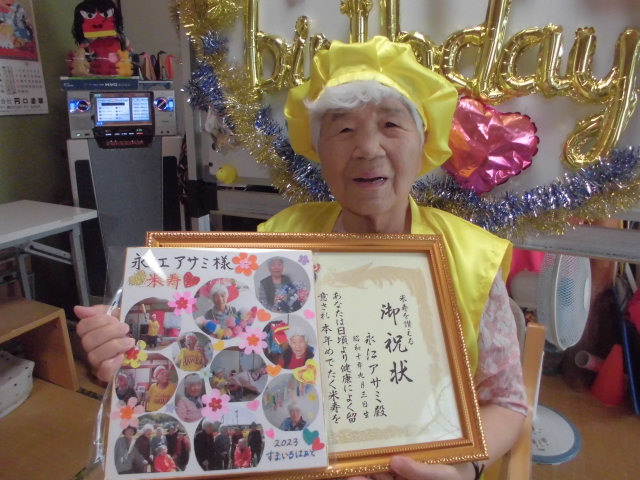 birthday
永江アサミ様
米寿
2023
すまいるはあと
米寿を讃える
御祝状
永江アサミ殿
昭和十年九月三日生
あなたは日頃より健康によく留
意され 本年めでたく米寿を